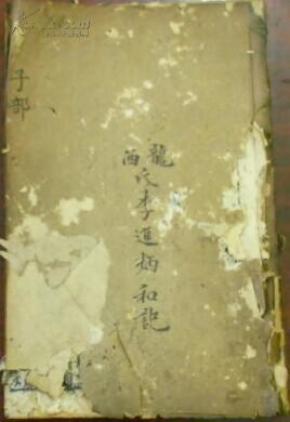 龍西氏李進炳和記
子部